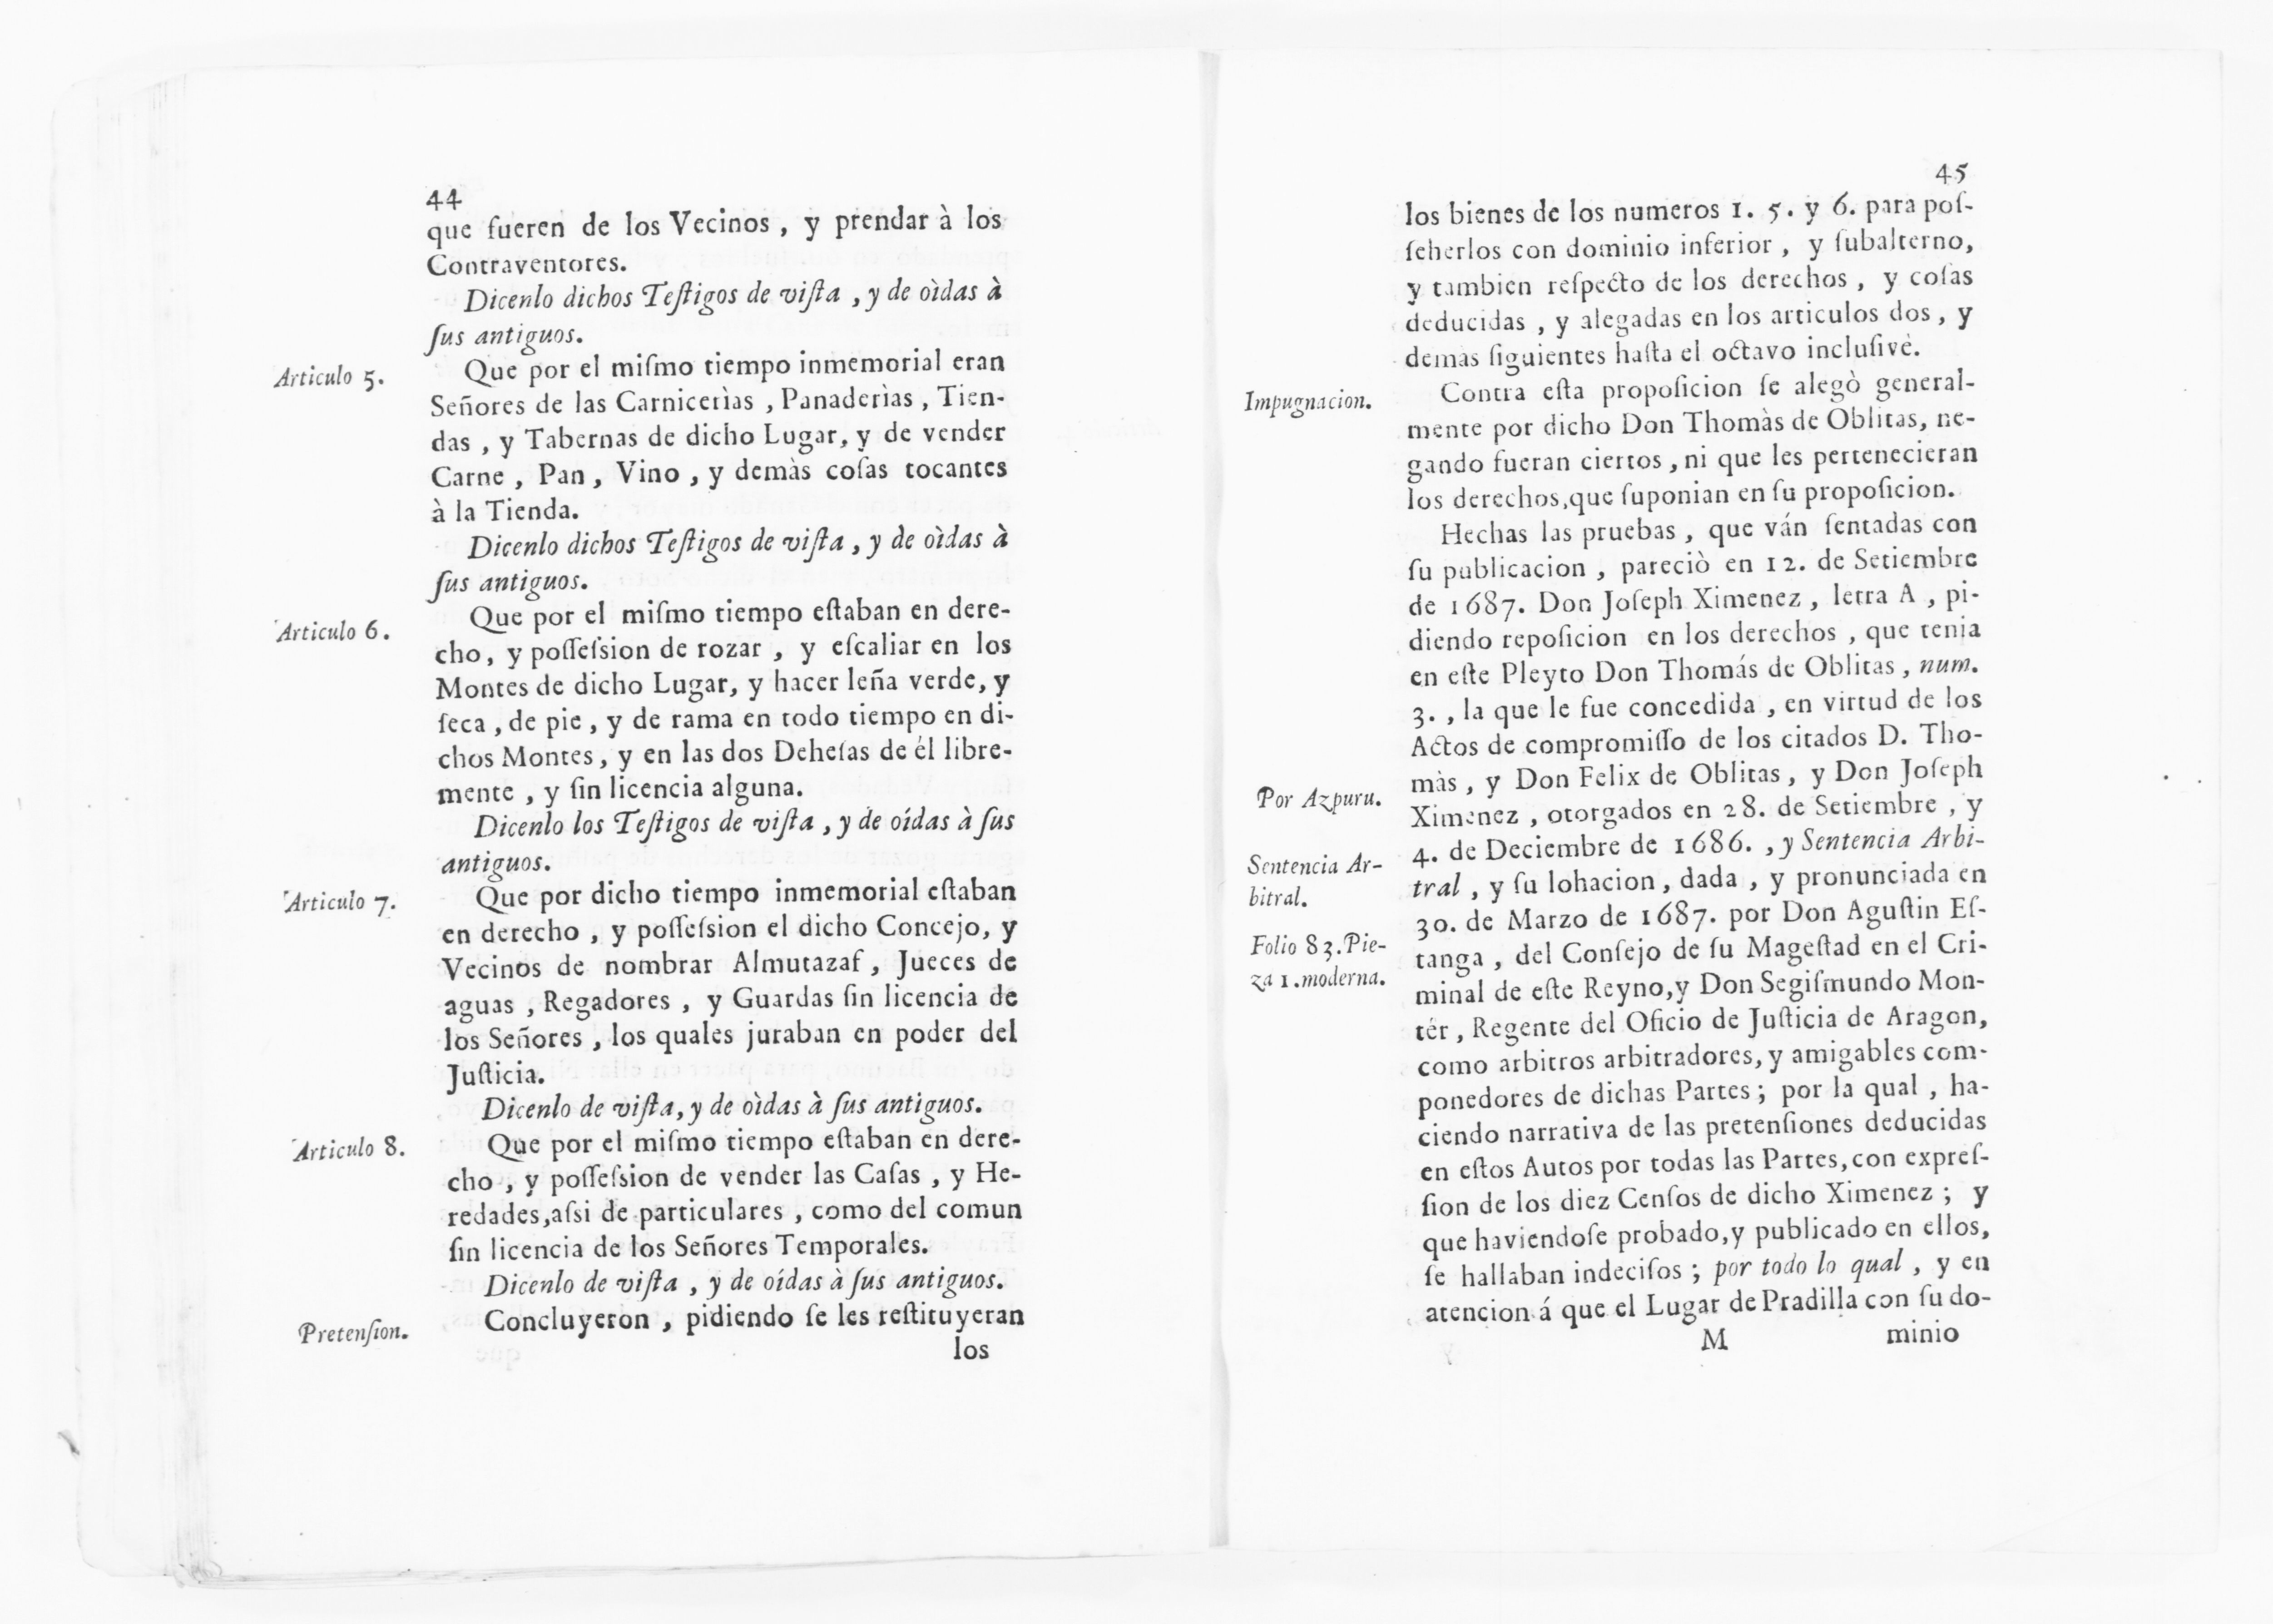 44
que fueren de los Vecinos, y prendar à los
Contraventores.
Dicenlo dichos Teſtigos de viſta, y de oìdas à
ſus antiguos.
Articulo 5.
Que por el miſmo tiempo inmemorial eran
Señores de las Carnicerìas, Panaderìas, Tien-
das, y Tabernas de dicho Lugar, y de vender
Carne, Pan, Vino, y demàs coſas tocantes
à la Tienda.
Dicenlo dichos Teſtigos de viſta, y de oìdas à
ſus antiguos.
Articulo 6.
Que por el miſmo tiempo eſtaban en dere-
cho, y poſſeſsion de rozar, y eſcaliar en los
Montes de dicho Lugar, y hacer leña verde, y
ſeca, de pie, y de rama en todo tiempo en di-
chos Montes, y en las dos Deheſas de él libre-
mente, y ſin licencia alguna.
Dicenlo los Teſtigos de viſta, y de oídas à ſus
antiguos.
Articulo 7.
Que por dicho tiempo inmemorial eſtaban
en derecho, y poſſeſsion el dicho Concejo, y
Vecinos de nombrar Almutazaf, Jueces de
aguas, Regadores, y Guardas ſin licencia de
los Señores, los quales juraban en poder del
Juſticia.
Dicenlo de viſta, y de oìdas à ſus antiguos.
Articulo 8.
Que por el miſmo tiempo eſtaban en dere-
cho, y poſſeſsion de vender las Caſas, y He-
redades, aſsi de particulares, como del comun
ſin licencia de los Señores Temporales.
Dicenlo de viſta, y de oídas à ſus antiguos.
Pretenſion.
Concluyeron, pidiendo ſe les reſtituyeran
los
45
los bienes de los numeros 1. 5. y 6. para poſ-
ſeherlos con dominio inferior, y ſubalterno,
y tambien reſpecto de los derechos, y coſas
deducidas, y alegadas en los articulos dos, y
demàs ſiguientes haſta el octavo incluſivè.
Impugnacion.
Contra eſta propoſicion ſe alegò general-
mente por dicho Don Thomàs de Oblitas, ne-
gando fueran ciertos, ni que les pertenecieran
los derechos, que ſuponian en ſu propoſicion.
Hechas las pruebas, que ván ſentadas con
ſu publicacion, pareciò en 12. de Setiembre
de 1687. Don Joſeph Ximenez, letra A, pi-
diendo repoſicion en los derechos, que tenia
en eſte Pleyto Don Thomás de Oblitas, num.
3., la que le fue concedida, en virtud de los
Actos de compromiſſo de los citados D. Tho-
màs, y Don Felix de Oblitas, y Don Joſeph
Por Azpuru.
Ximenez, otorgados en 28. de Setiembre, y
4. de Deciembre de 1686., y Sentencia Arbi-
Sentencia Ar-
bitral.
tral, y ſu lohacion, dada, y pronunciada en
30. de Marzo de 1687. por Don Aguſtin Eſ-
Folio 83. Pie-
za 1. moderna.
tanga, del Conſejo de ſu Mageſtad en el Cri-
minal de eſte Reyno, y Don Segiſmundo Mon-
tér, Regente del Oficio de Juſticia de Aragon,
como arbitros arbitradores, y amigables com-
ponedores de dichas Partes; por la qual, ha-
ciendo narrativa de las pretenſiones deducidas
en eſtos Autos por todas las Partes, con expreſ-
ſion de los diez Cenſos de dicho Ximenez; y
que haviendoſe probado, y publicado en ellos,
ſe hallaban indeciſos; por todo lo qual, y en
atencion á que el Lugar de Pradilla con ſu do-
M
minio